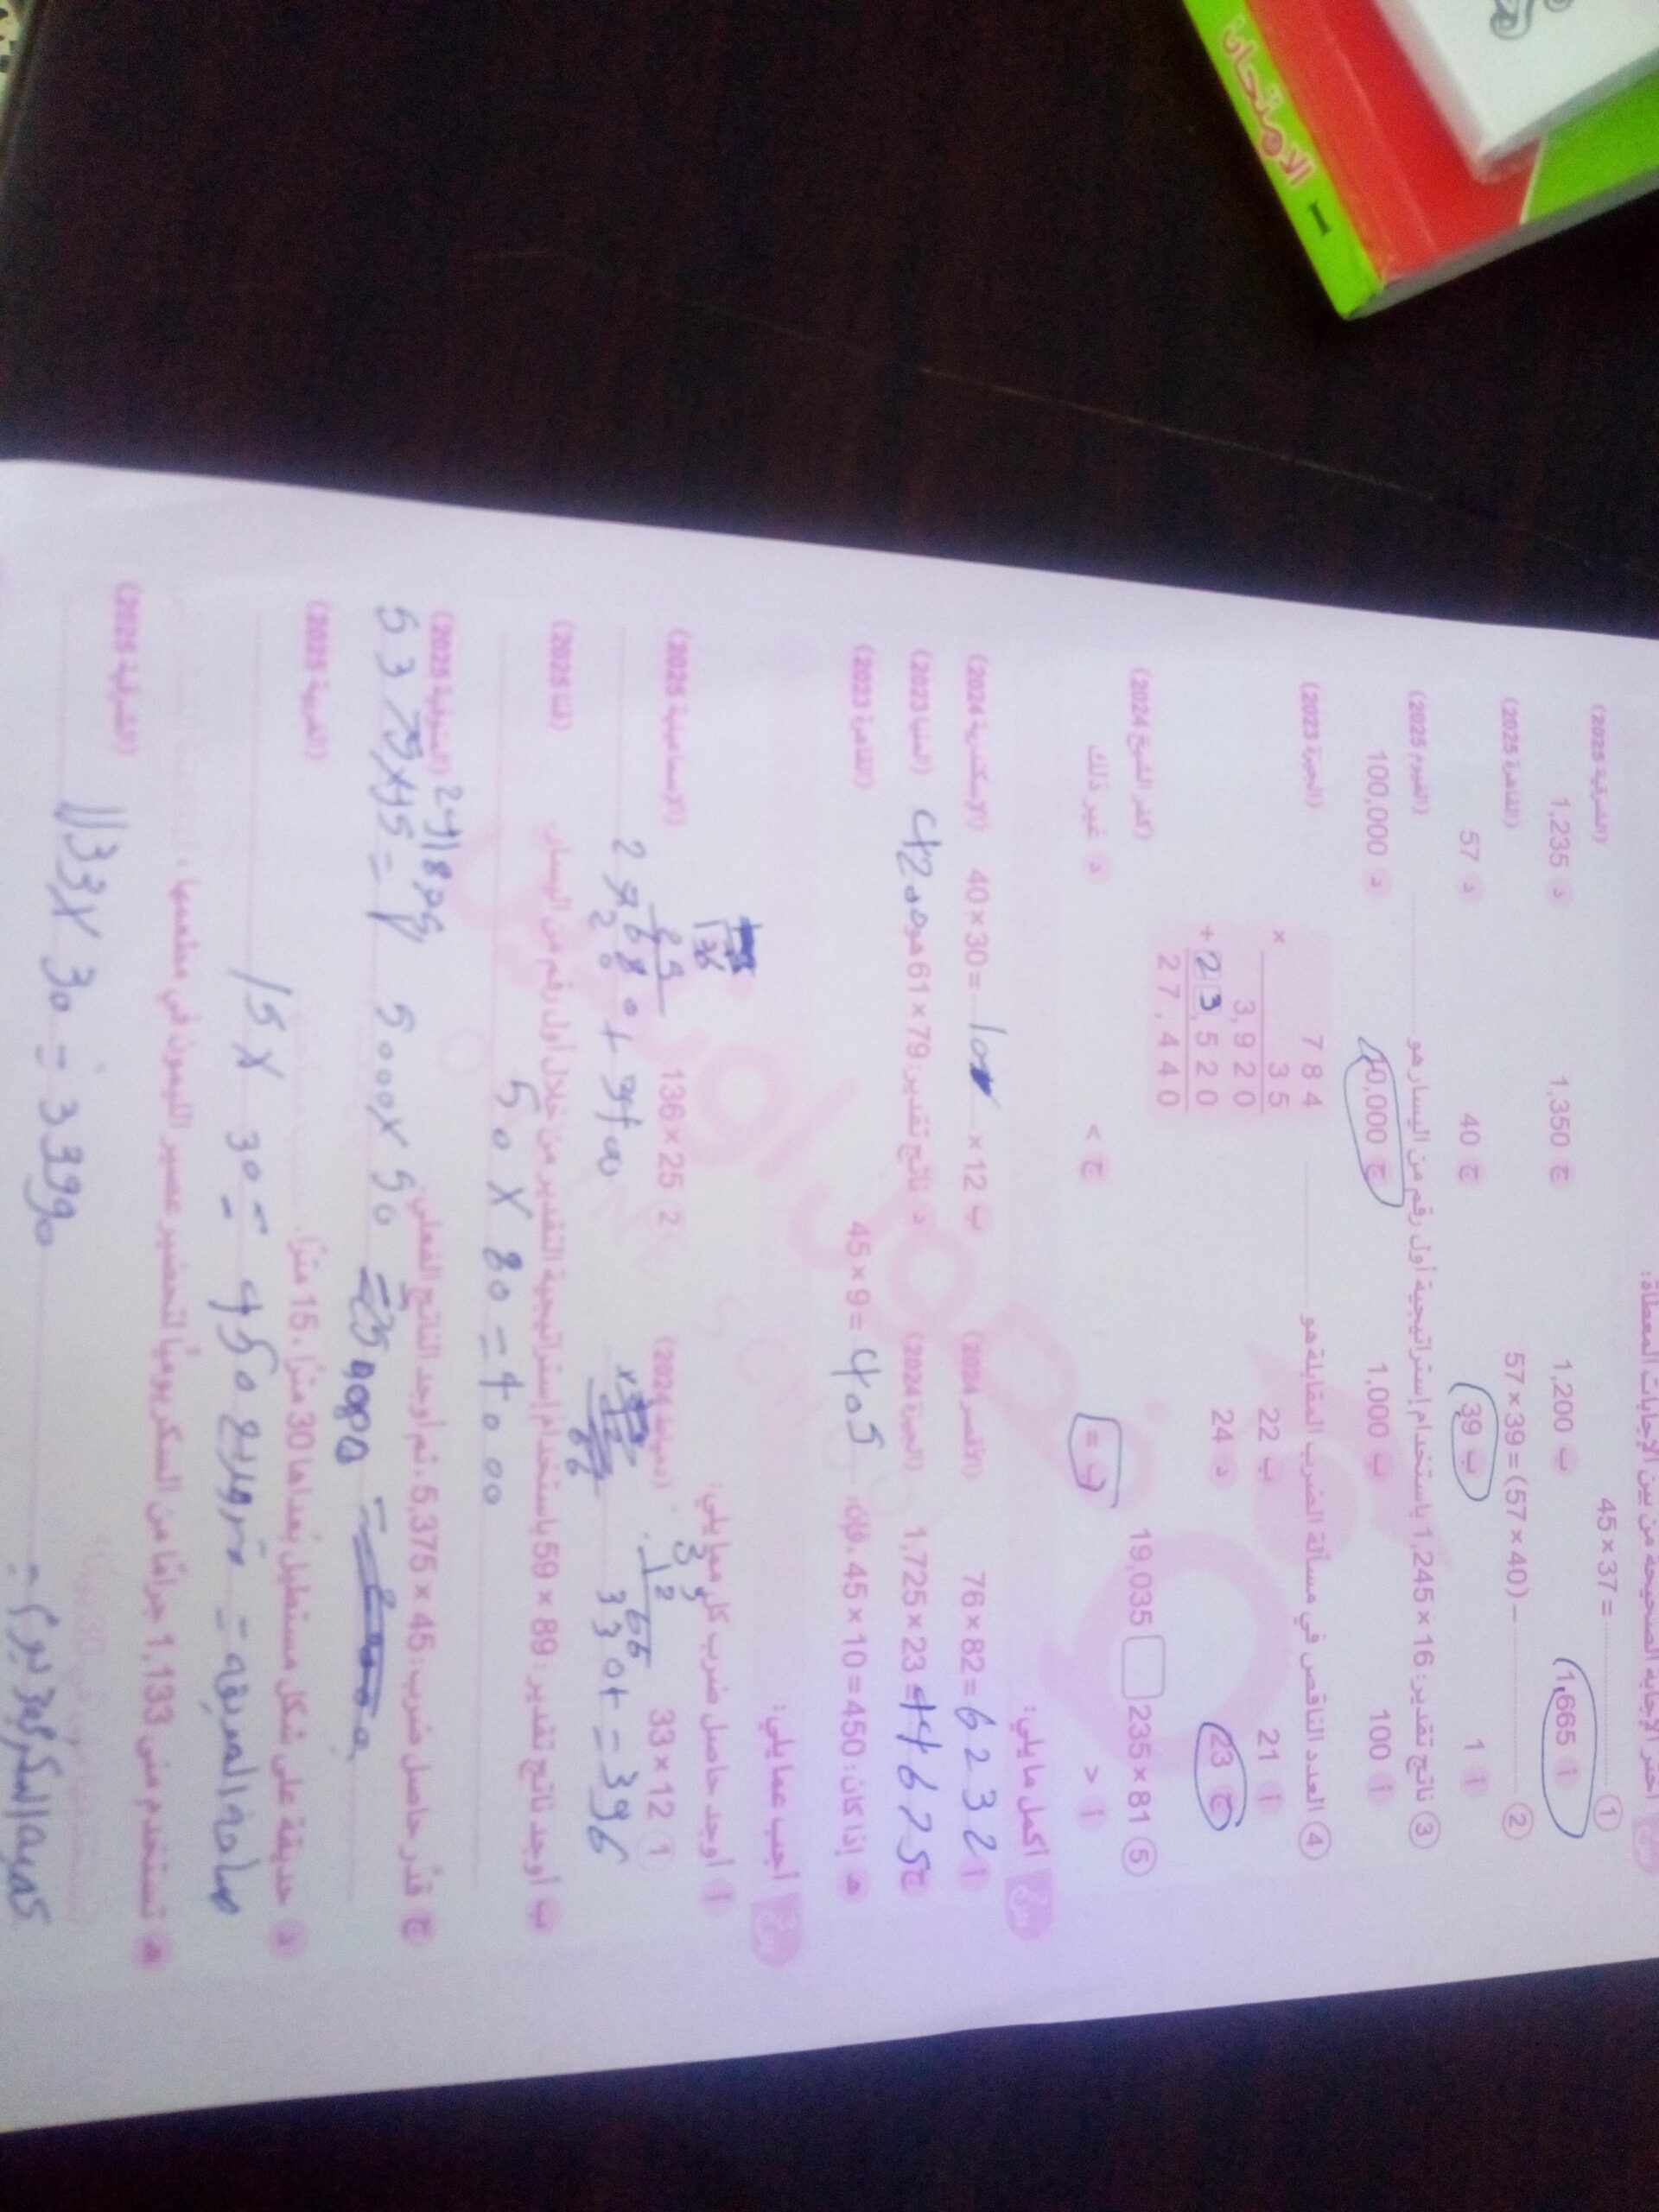 الامتحان
1
اختر الإجابة الصحيحة من بين الإجابات المعطاة:
① 45 × 37 = (الشرقية 2025)
أ 1,665 ب 1,200 ج 1,350 د 1,235
② 57 × 39 = (57 × 40) − (القاهرة 2025)
أ 1 ب 39 ج 40 د 57
③ ناتج تقدير: 16 × 1,245 باستخدام إستراتيجية أول رقم من اليسار هو (الفيوم 2025)
أ 100 ب 1,000 ج 10,000 د 100,000
④ العدد الناقص في مسألة الضرب المقابلة هو (الجيزة 2023)
أ 21 ب 22
ج 23 د 24
784
× 35
3,920
+ 23,520
27,440
⑤ 235 × 81 □ 19,035 (كفر الشيخ 2024)
أ > ب = ج < د غير ذلك
أكمل ما يلي:
أ 76 × 82 = 6232 (الأقصر 2024)
ب 40 × 30 = × 12 (الإسكندرية 2024)
ج 1,725 × 23 = (الجيزة 2024)
د ناتج تقدير: 79 × 61 هو (المنيا 2023)
هـ إذا كان: 450 = 10 × 45، فإن: 45 × 9 = 405 (القاهرة 2023)
أجب عما يلي:
أ أوجد حاصل ضرب كل مما يلي:
1 33 × 12 (دمياط 2024)
2 136 × 25 (الإسماعيلية 2025)
33
12
66
330+ = 396
136
25
ب أوجد ناتج تقدير: 89 × 59 باستخدام إستراتيجية التقدير من خلال أول رقم من اليسار. (قنا 2025)
50 X 80 = 4000
ج قدّر حاصل ضرب: 45 × 5,375، ثم أوجد الناتج الفعلي. (المنوفية 2025)
5000 X 50
5375 X 45 =
د حديقة على شكل مستطيل بُعداها 30 مترًا، 15 مترًا. (الغربية 2025)
مساحة الحديقة = 15 X 30 = 450
هـ تستخدم منى 1,133 جرامًا من السكر يوميًا لتحضير عصير الليمون في مطعمها. (الشرقية 2025)
كمية السكر في 30 يوم = 1133 X 30 = 33990